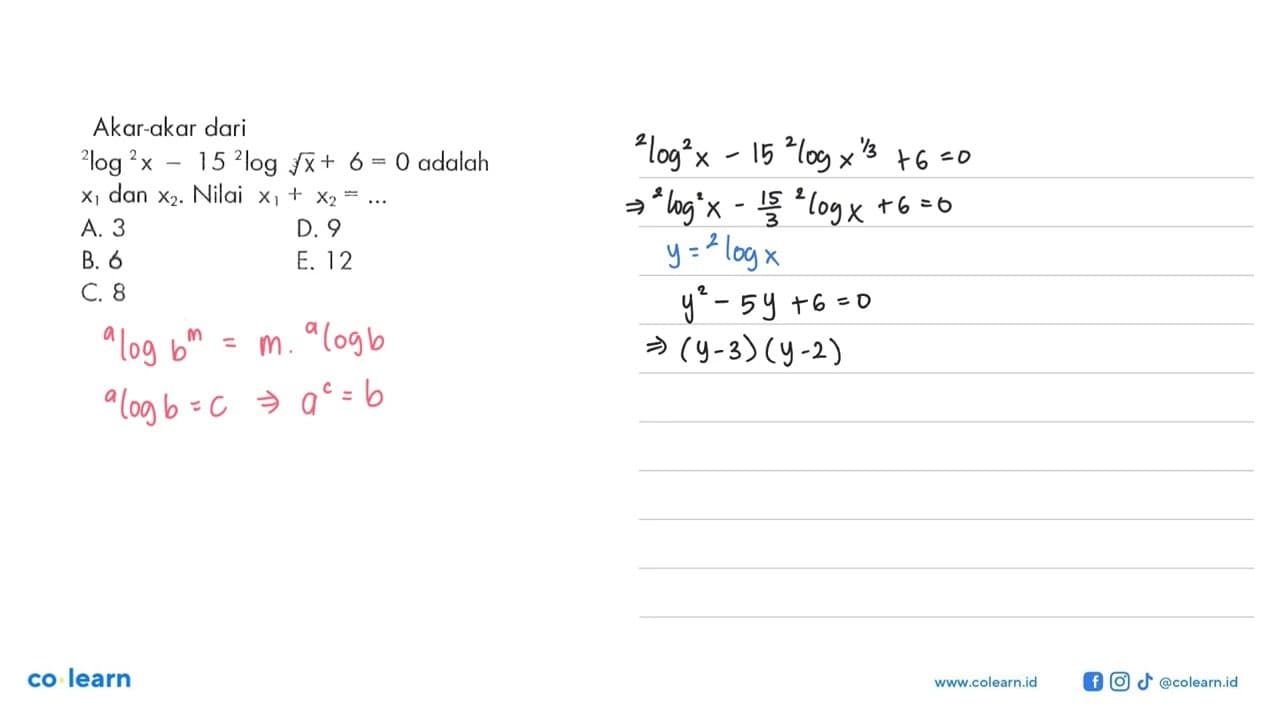 Akar-akar dari
²log ²x − 15 ²log ∛x + 6 = 0 adalah
x₁ dan x₂. Nilai x₁ + x₂ = ...
A. 3 D. 9
B. 6 E. 12
C. 8
ᵃlog bᵐ = m. ᵃlog b
ᵃlog b = c ⇒ aᶜ = b
²log²x − 15 ²log x^1/3 + 6 = 0
⇒ ²log²x − 15/3 ²log x + 6 = 0
y = ²log x
y² − 5y + 6 = 0
⇒ (y−3)(y−2)
co·learn
www.colearn.id @colearn.id